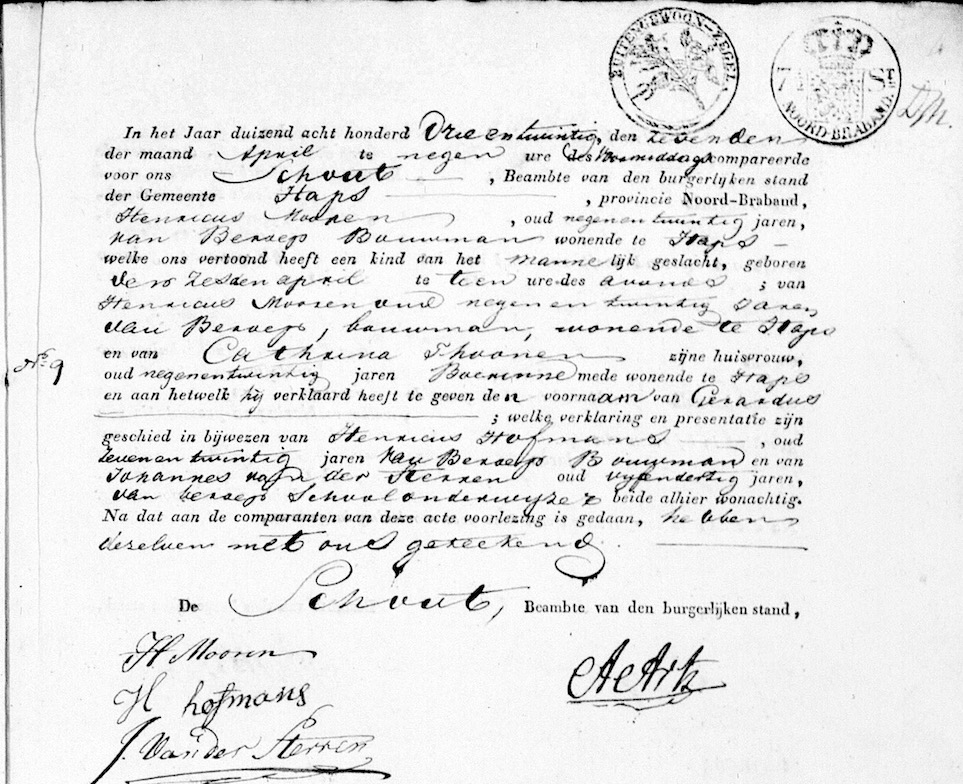 BUITENGEWOON-ZEGEL
7 ST
NOORD-BRABAND
In het Jaar duizend acht honderd Drieentwintig, den zevenden
der maand April te negen ure des voormiddags compareerde
voor ons Schout, Beambte van den burgerlyken stand
der Gemeente Haps, provincie Noord-Braband,
Henricus Mooren, oud negenentwintig jaren,
van Beroep Bouwman wonende te Haps
welke ons vertoond heeft een kind van het mannelijk geslacht, geboren
den zesden april te tien ure des avonds ; van
Henricus Mooren oud negen en twintig Jaren
van Beroep, bouwman, wonende te Haps
No. 9
en van Cathrina Thoonen zijne huisvrouw,
oud negenentwintig jaren Boerinne mede wonende te Haps
en aan hetwelk hij verklaard heeft te geven den voornaam van Gerardus
; welke verklaring en presentatie zijn
geschied in bijwezen van Henricus Hofmans, oud
zevenentwintig jaren van Beroep Bouwman en van
Johannes van der Sterren oud vyfendertig jaren,
van beroep Schoolonderwyzer beide alhier wonachtig.
Na dat aan de comparanten van deze acte voorlezing is gedaan, hebben
dezelven met ons geteekend.
De Schout, Beambte van den burgerlijken stand,
H Mooren
AeArtz
H hofmans
J. Van der Sterren